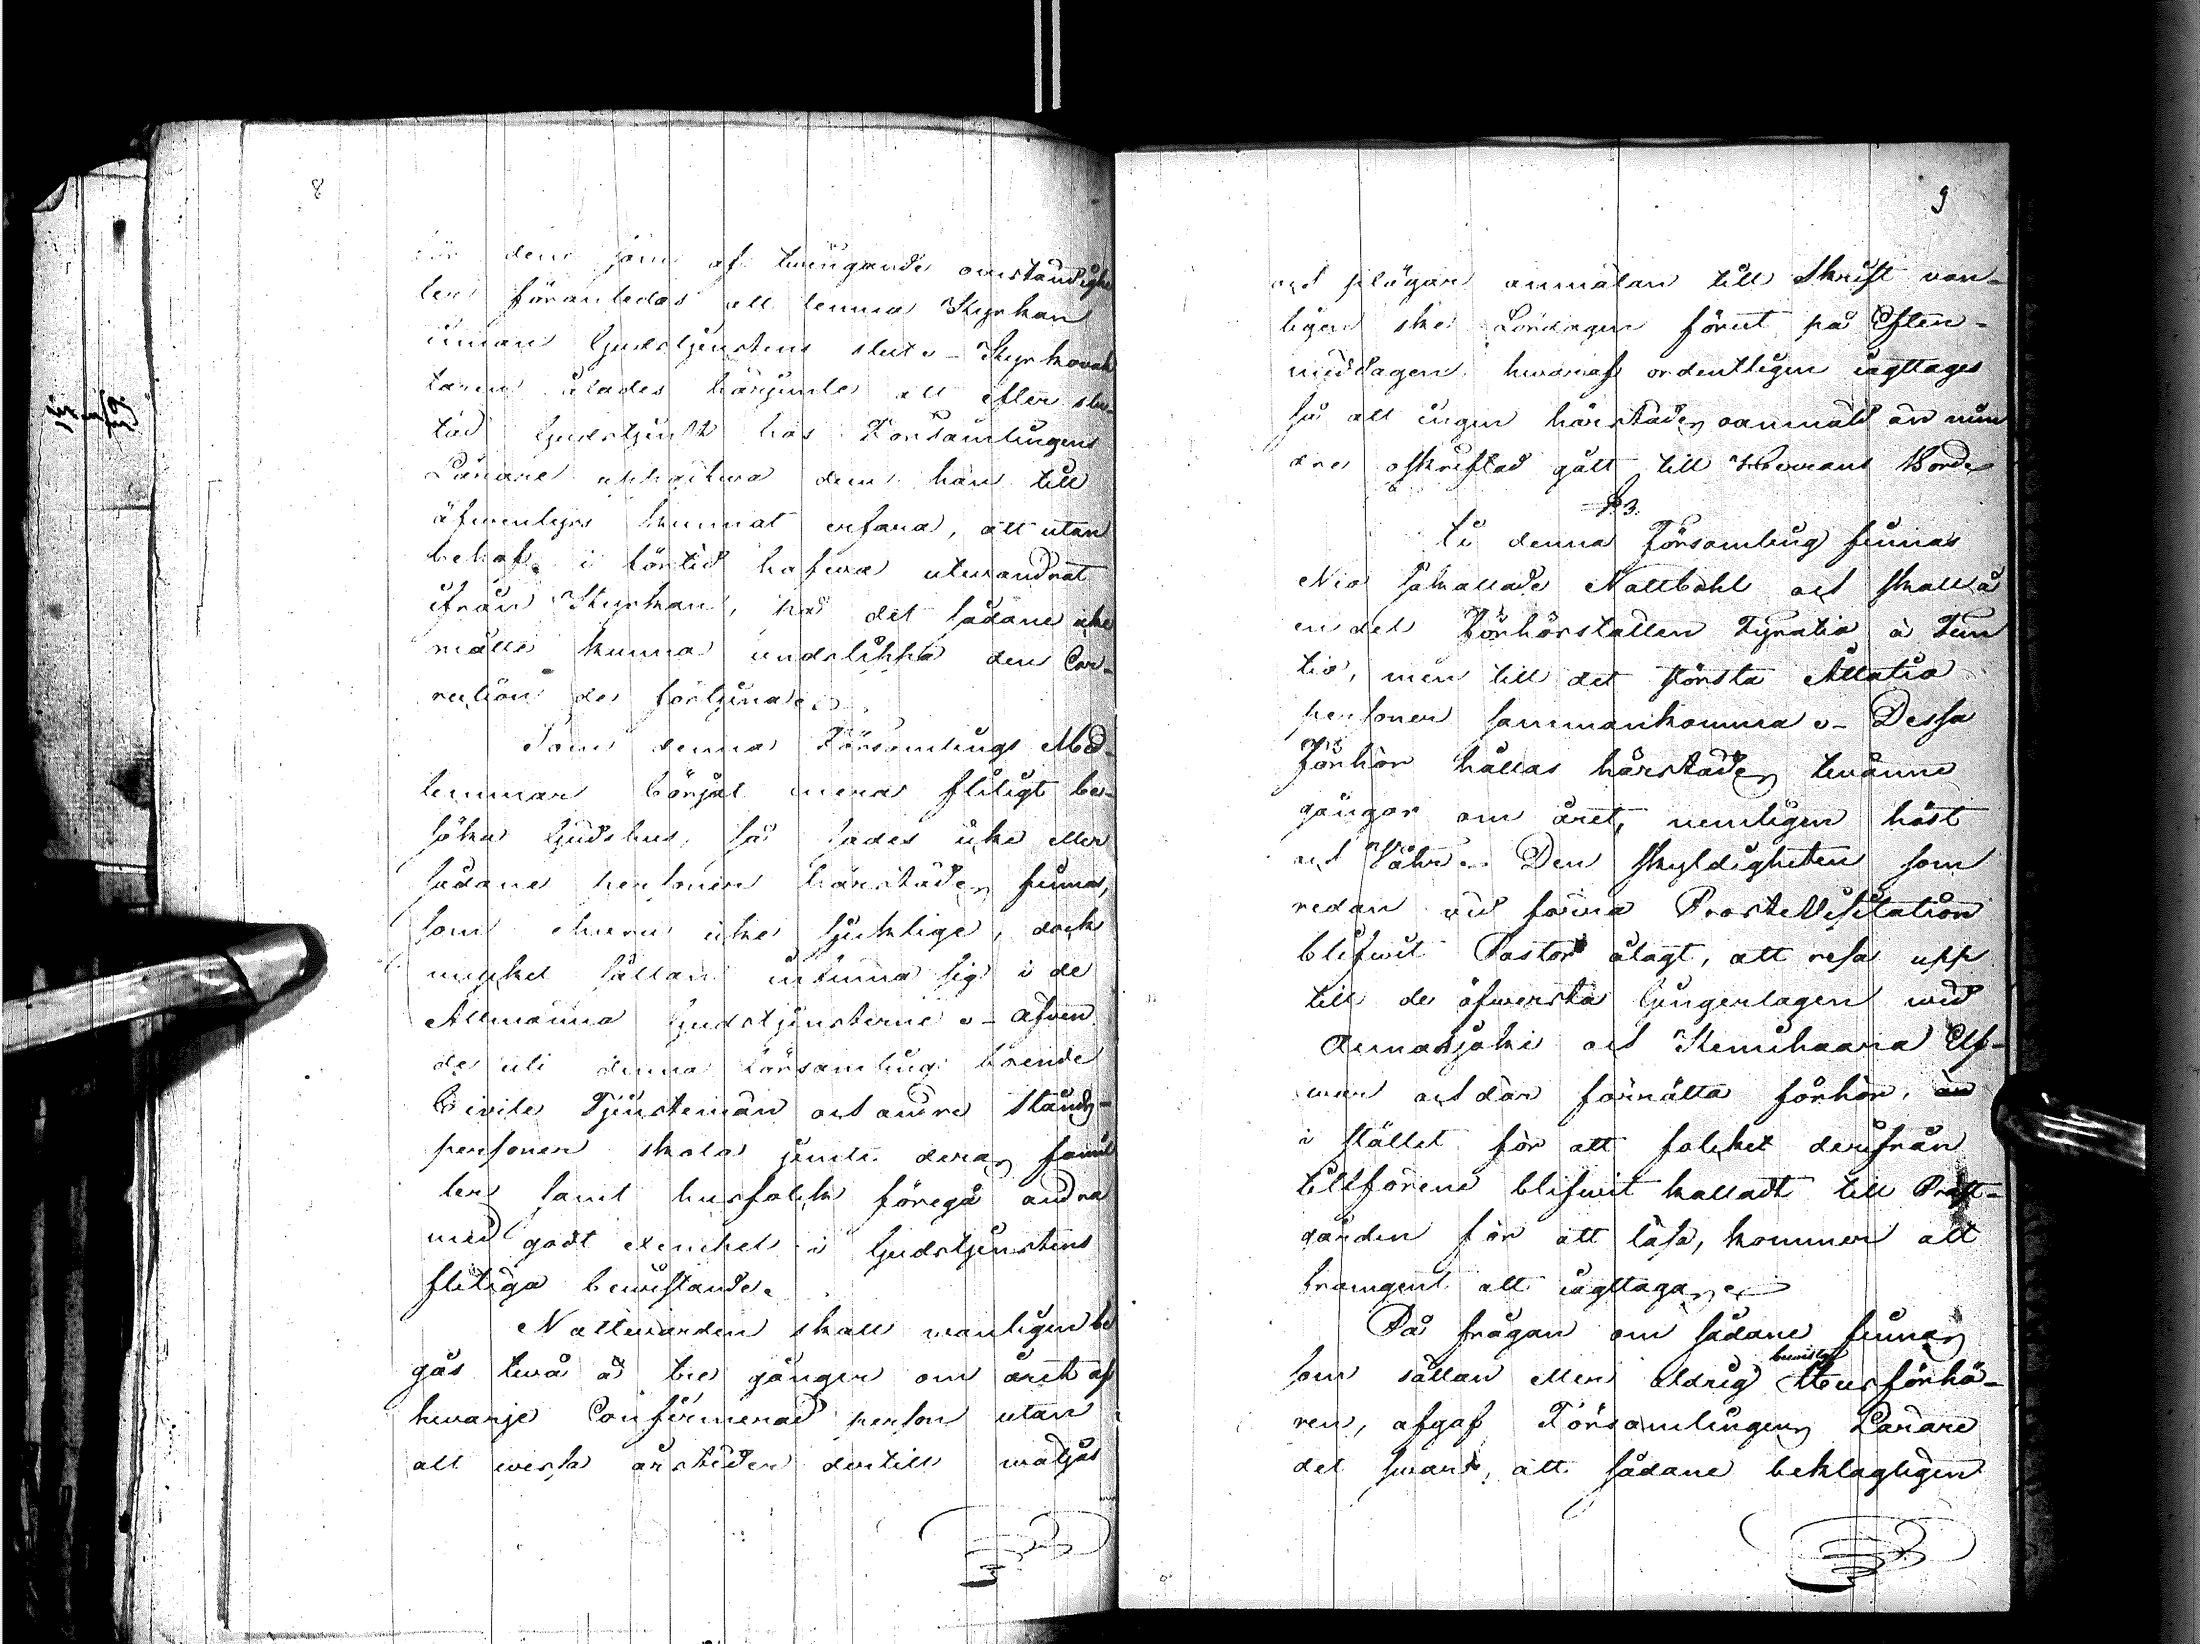 8
för dem som af twingande omständighe
ter föranledas att lemna Kyrkan
innan Gudstjenstens slut. Kyrkovak
taren ålades härjemte att efter slu-
tad Gudstjenst hos Församlingens
Lärare uppgifwa dem han till
äfwentyrs kunnat erfara, att utan
behof i förtid hafwa utwandrat
ifrån Kyrkan, på det sådane icke
måtte kunna undslippa den Cor-
rection de förtjena.
Som denna Församlings Med-
lemmar börjat meras flitigt be-
söka Gudshus, så lades icke eller
sådane personer härstädes finnas,
som ehuru icke sjuklige, dock
mycket sällan infinna sig i de
Allmänna Gudstjensterne. Äfven
de uti denna Församling boende
Civile Tjensteman och andre Stånds-
personer skola jemte deras famil
ler samt husfolck föregå andra
med godt exempel i Gudstjenstens
flitiga bewistande.
Nattwarden skall wanligen be
gås twå à tre gånger om året af
hwarje Confirmerad person utan
att wissa årstider dertill wäljas
9
och plägar anmälan till Skrift van-
ligen ske Lördagen förut på Efter-
middagen. hwaraf ordentligen iagttages
så att ingen härstädes oanmäld än min
dre oskriftad gått till Herrans Bord.
§ 3.
Ti denna Församling finnas
Nio såkallade Nattbohl och skall å
en del Förhörställen Fyratio à Fem
tio, men till det största Åttatio
personer sammankomma. Dessa
Förhör hållas härstädes twänne
gångor om året, nemligen höst
och Våhr. Den skyldigheten som
redan wid förra ProsteVisitation
blifwit Pastor ålagt, att resa upp
till de öfwersta Gungerlagen wid
Aernasjoki och Kemihaara Elf-
war och där förrätta förhör, än
i stället för att folcket derifrån
tillförene blifwit kalladt till Präst-
gården för att läsa, kommer att
framgent att iagttagas.
På frågan om sådane finnas
som sällan eller aldrig bewistat Husförhö-
ren, afgaf Församlingens Lärare
det swar, att sådane beklagligen